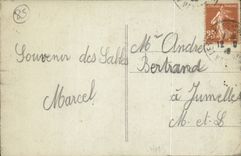 RS
Souvenir des Sables
Marcel
Mr André
Bertrand
à Jumelles
M.-et-L.